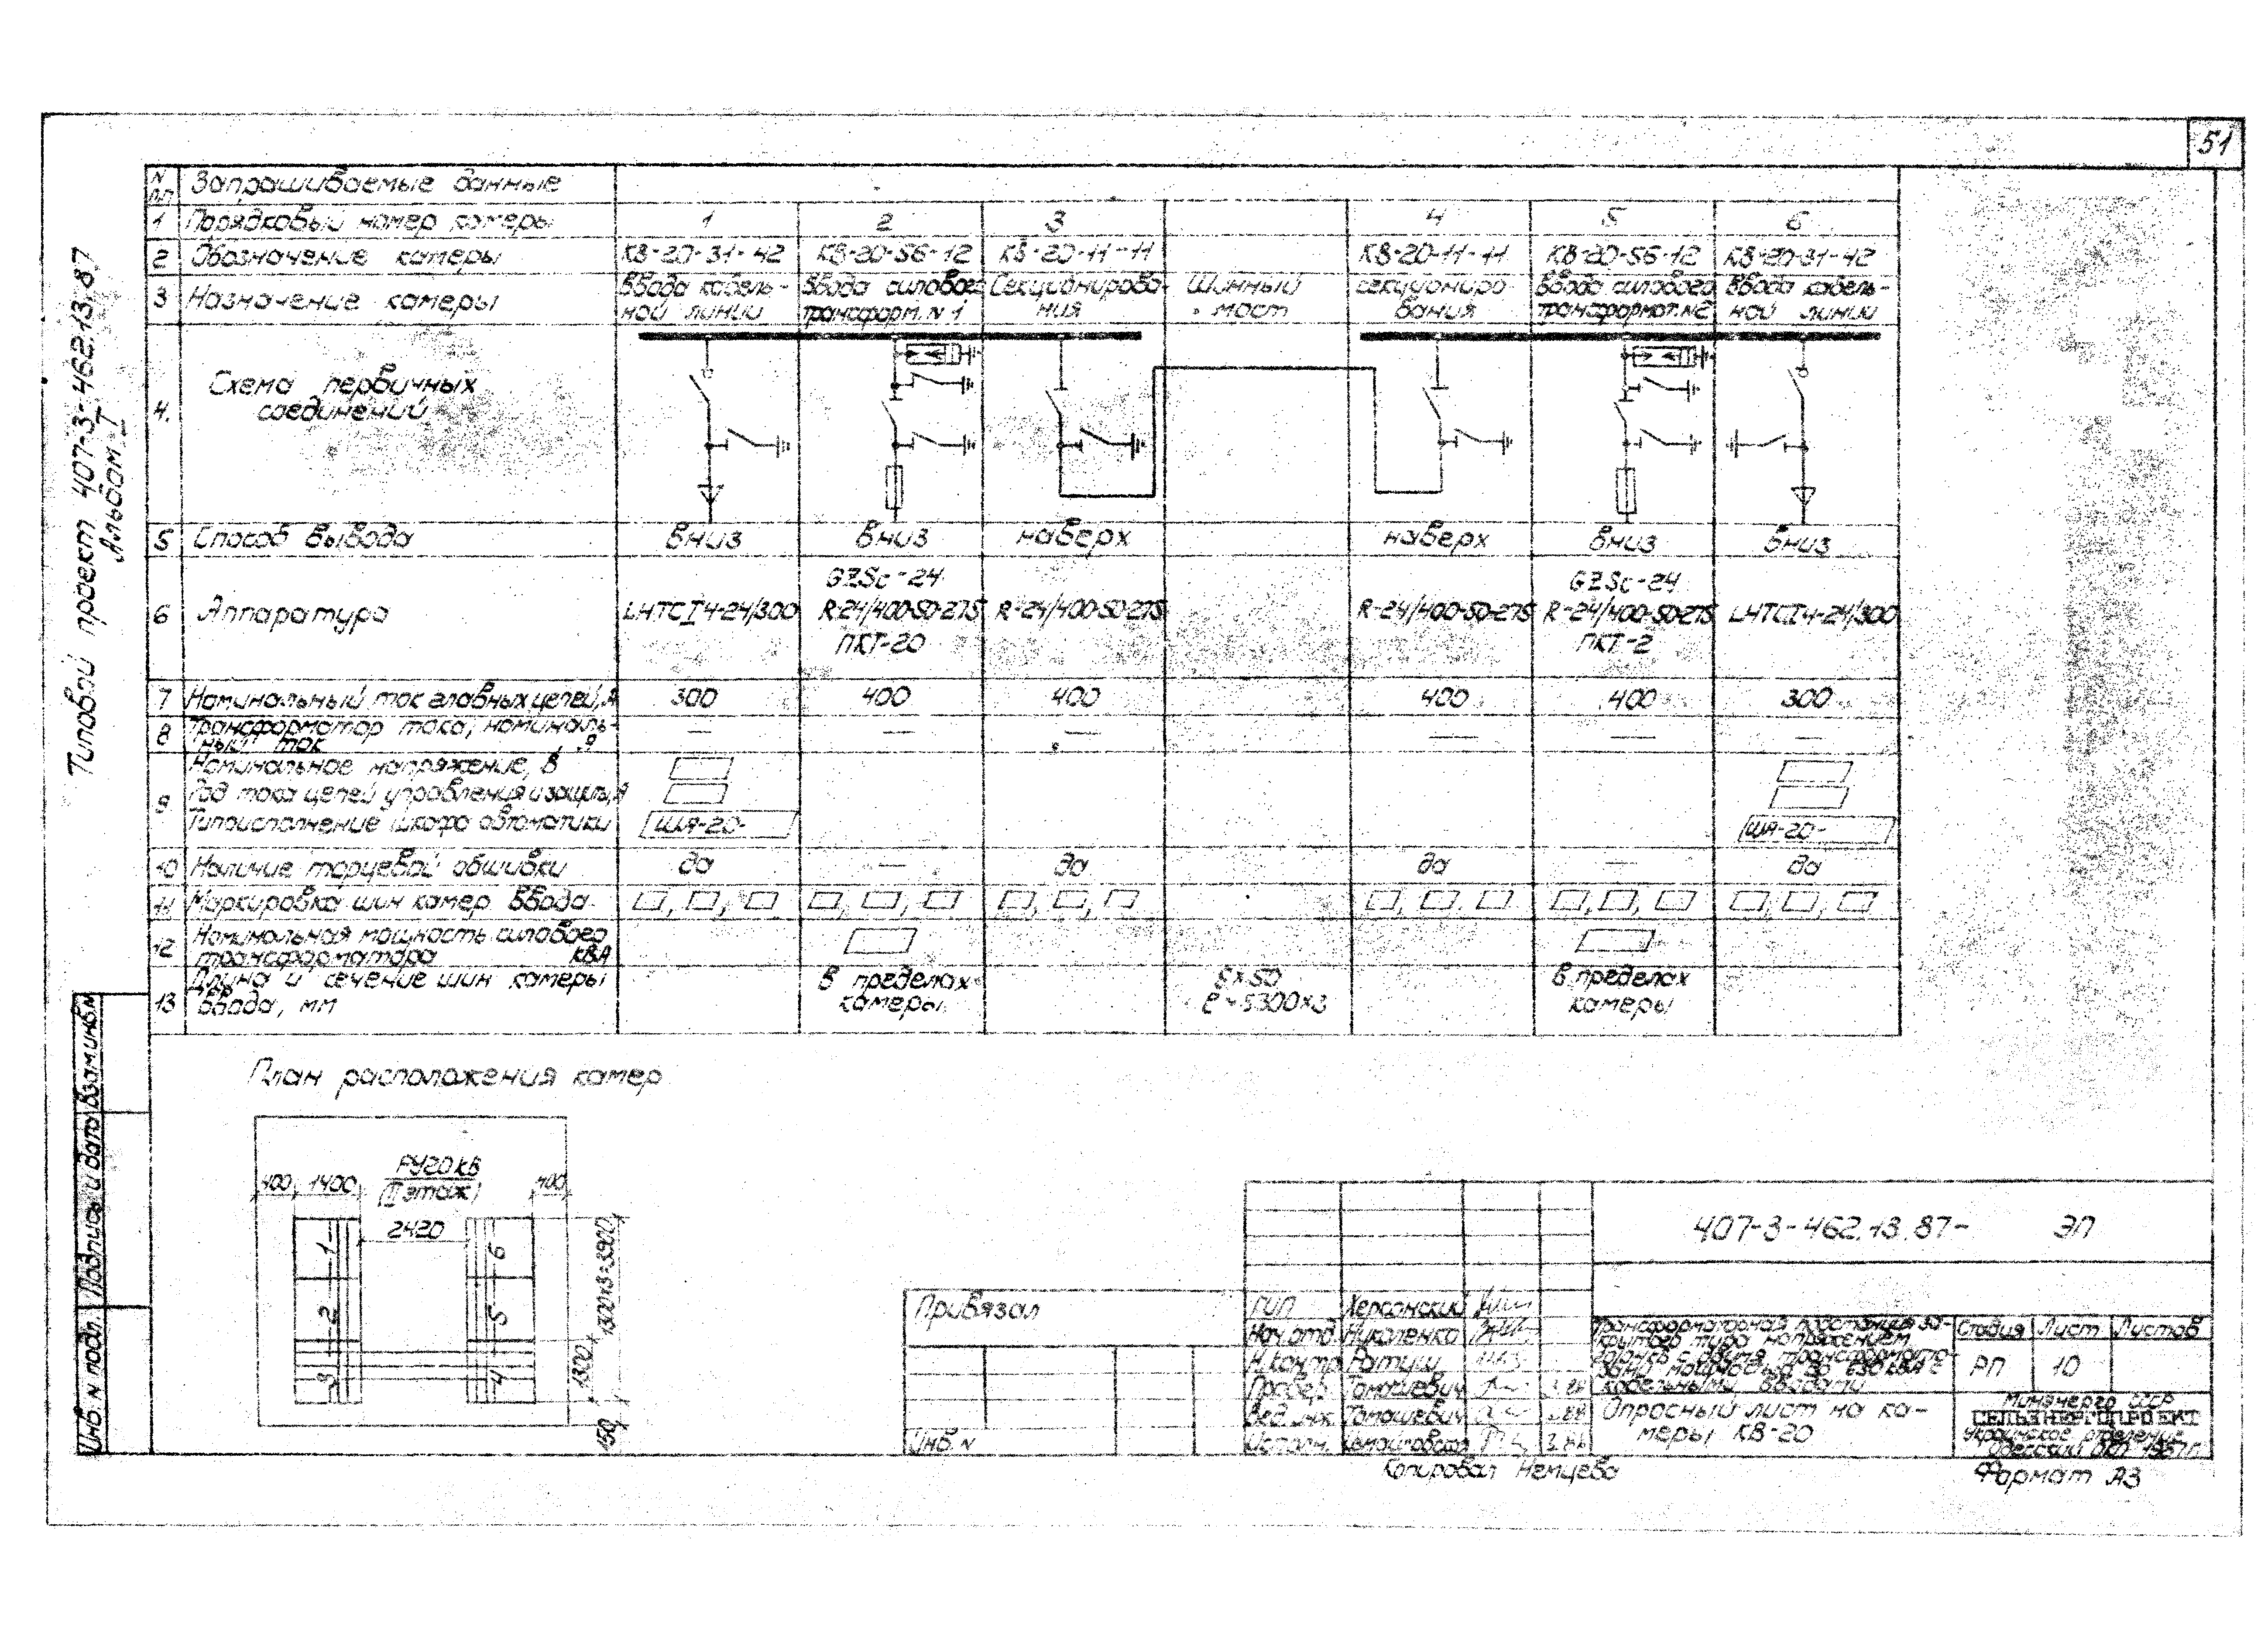 51
Типовой проект 407-3-462.13.87
Альбом I
N п.п Запрашиваемые данные
1 Порядковый номер камеры 1 2 3 4 5 6
2 Обозначение камеры КВ-20-31-42 КВ-20-56-12 КВ-20-11-11 КВ-20-11-11 КВ-20-56-12 КВ-20-31-42
3 Назначение камеры
Ввода кабель-
ной линии
Ввода силового
трансформ. N 1
Секционирова-
ния
Шинный
мост
секциониро-
вания
Ввода силового
трансформат. №2
Ввода кабель-
ной линии
4. Схема первичных
соединений
5 Способ вывода вниз вниз наверх наверх вниз вниз
6 Аппаратура
LHTCI4-24/300
GZSc-24
R-24/400-50-275
ПКТ-20
R-24/400-50-275
R-24/400-50-275
GZSc-24
R-24/400-50-275
ПКТ-2
LHTCI4-24/300
7 Номинальный ток главных цепей, А 300 400 400 400 400 300
8 Трансформатор тока, номиналь-
ный ток , А — — — — — —
9 Номинальное напряжение, В
Род тока цепей управления и защиты, А
Типоисполнение шкафа автоматики ША-20- ША-20-
10 Наличие торцевой обшивки да — да да — да
11 Маркировка шин камер ввода
12 Номинальная мощность силового
трансформатора кВА
13 Длина и сечение шин камеры
ввода, мм
в пределах
камеры
5×50
ℓ~5300×3
в пределах
камеры
План расположения камер
РУ20кВ
(II этаж)
400 1400 400
2420
1 2 3
6 5 4
1300×3=3900
1300
150
Взам.инв.N
Подпись и дата
Инв. N подл.
Привязал
Инв. N
407-3-462.13.87- ЭП
ГИП Херсонский
Нач.отд. Николенко
Н.контр. Ратуш
Провер. Томашевич
Вед.инж. Томашевич
Исполн.
Трансформаторная подстанция за-
крытого типа напряжением
с двумя трансформато-
рами мощностью до 630 кВА с
кабельными вводами
Стадия Лист Листов
РП 10
Опросный лист на ка-
меры КВ-20
Минэнерго СССР
СЕЛЬЭНЕРГОПРОЕКТ
Украинское отделение
Одесский 1987г.
Копировал Немцева
Формат А3